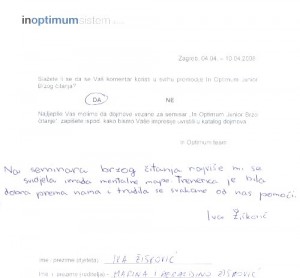 inoptimumsistem
Zagreb, 04.04. - 10.04.2008
Slažete li se da se Vaš komentar koristi u svrhu promocije In Optimum Junior
Brzog čitanja?
DA NE
Najljepše Vas molimo da dojmove vezane za seminar "In Optimum Junior Brzo
čitanje" zapišete ispod, kako bismo Vaše impresije uvrstili u katalog dojmova
In Optimum sistem
Na seminaru brzog čitanja najviše mi se
svidjela izrada mentalne mape. Trenerica je bila
dobra prema nama i trudila se svakome od nas pomoći.
Iva Žišković
Ime i prezime
IVA ŽIŠKOVIĆ
Ime i prezime
MARINA I ŽIŠKOVIĆ